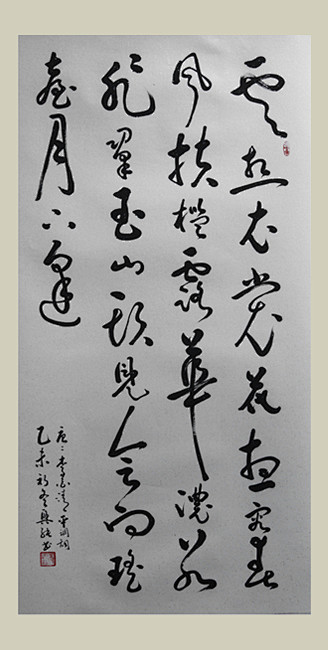 雲想衣裳花想容春
風拂檻露華濃若
非羣玉山頭見會向瑤
臺月下逢
唐 李白清平調詞
乙未初冬興書